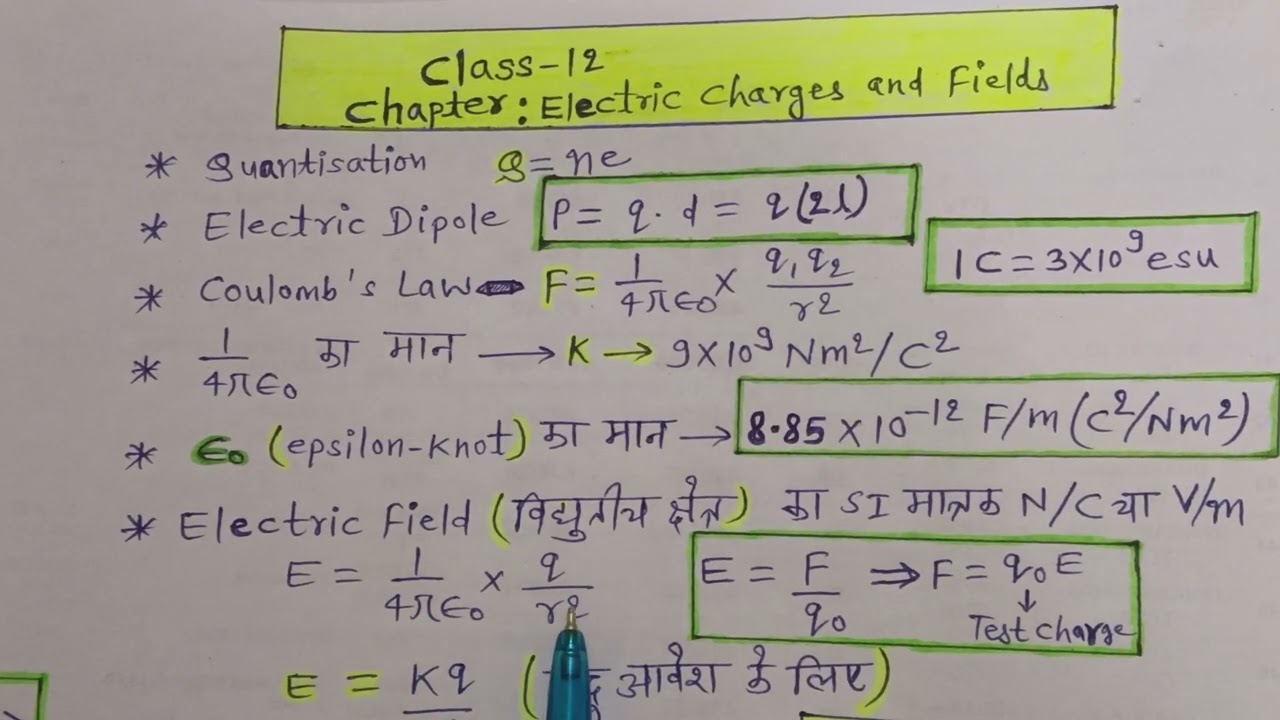 Class-12
Chapter: Electric Charges and Fields
* Quantisation Q = ne
* Electric Dipole P = q.d = q(2l)
1 C = 3×10⁹ esu
* Coulomb's Law F = 1/4πϵ₀ × q₁q₂/r²
* 1/4πϵ₀ का मान → K → 9×10⁹ Nm²/C²
* ϵ₀ (epsilon-knot) का मान → 8.85 × 10⁻¹² F/m (C²/Nm²)
* Electric Field (विद्युतीय क्षेत्र) का SI मात्रक N/C या V/m
E = 1/4πϵ₀ × q/r²
E = F/q₀ ⇒ F = q₀E
↓
Test charge
E = Kq ( आवेश के लिए)